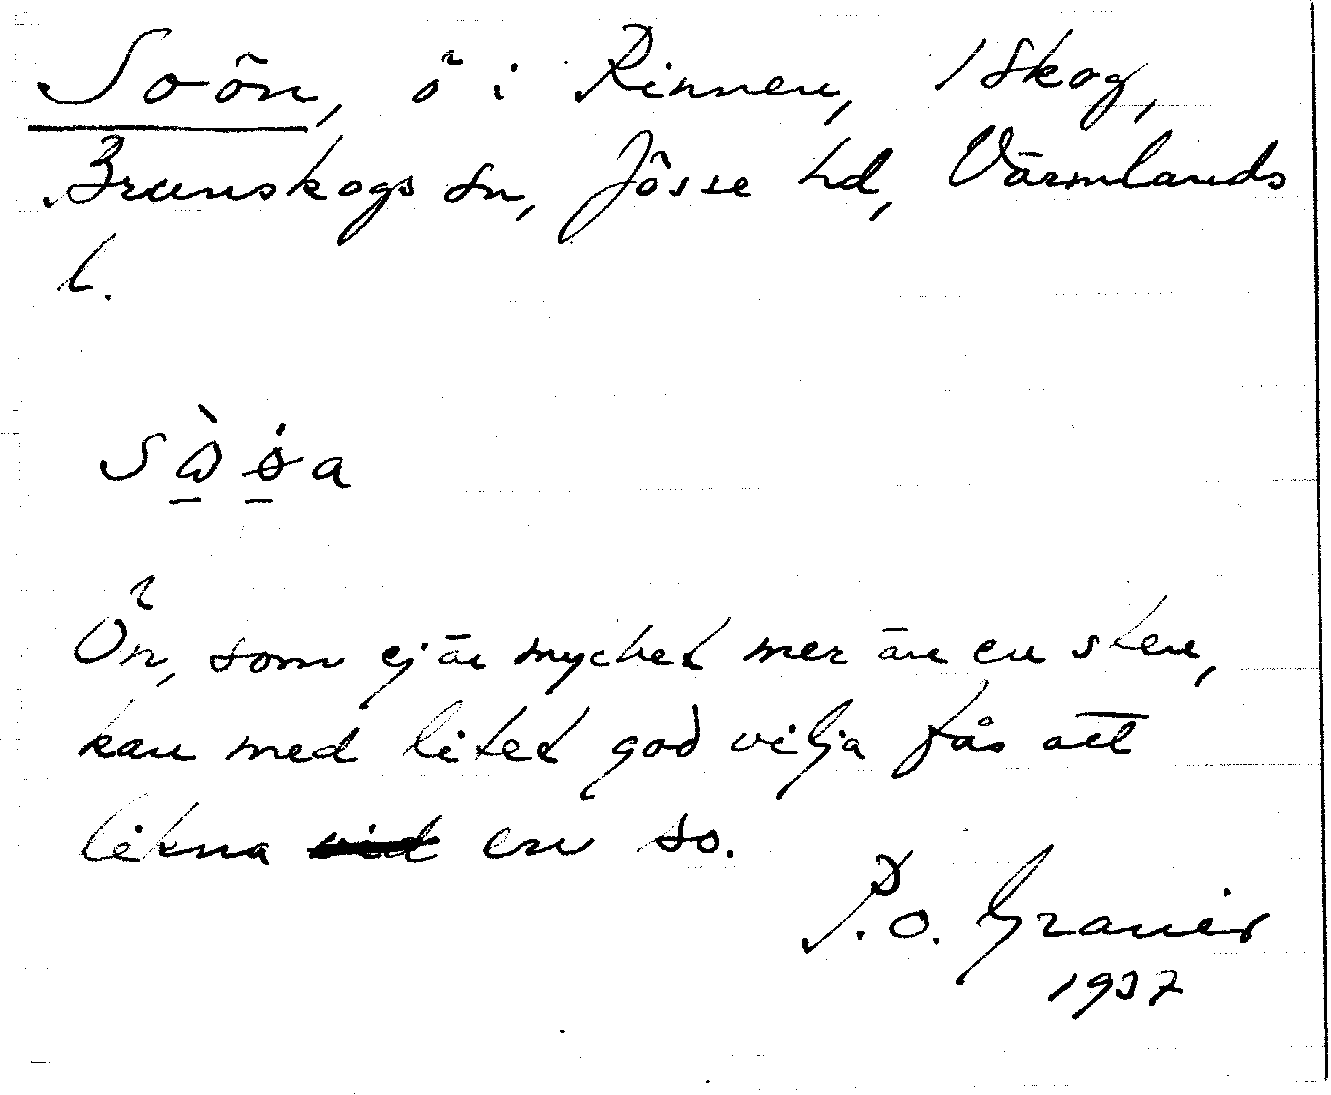 Soön, ö i Rinnen, 1 Skog,
Brunskogs sn, Jösse hd, Värmlands
l.
Ön, som ej är mycket mer än en sten,
kan med litet god vilja fås att
likna en so.
P. O. Granér
1937